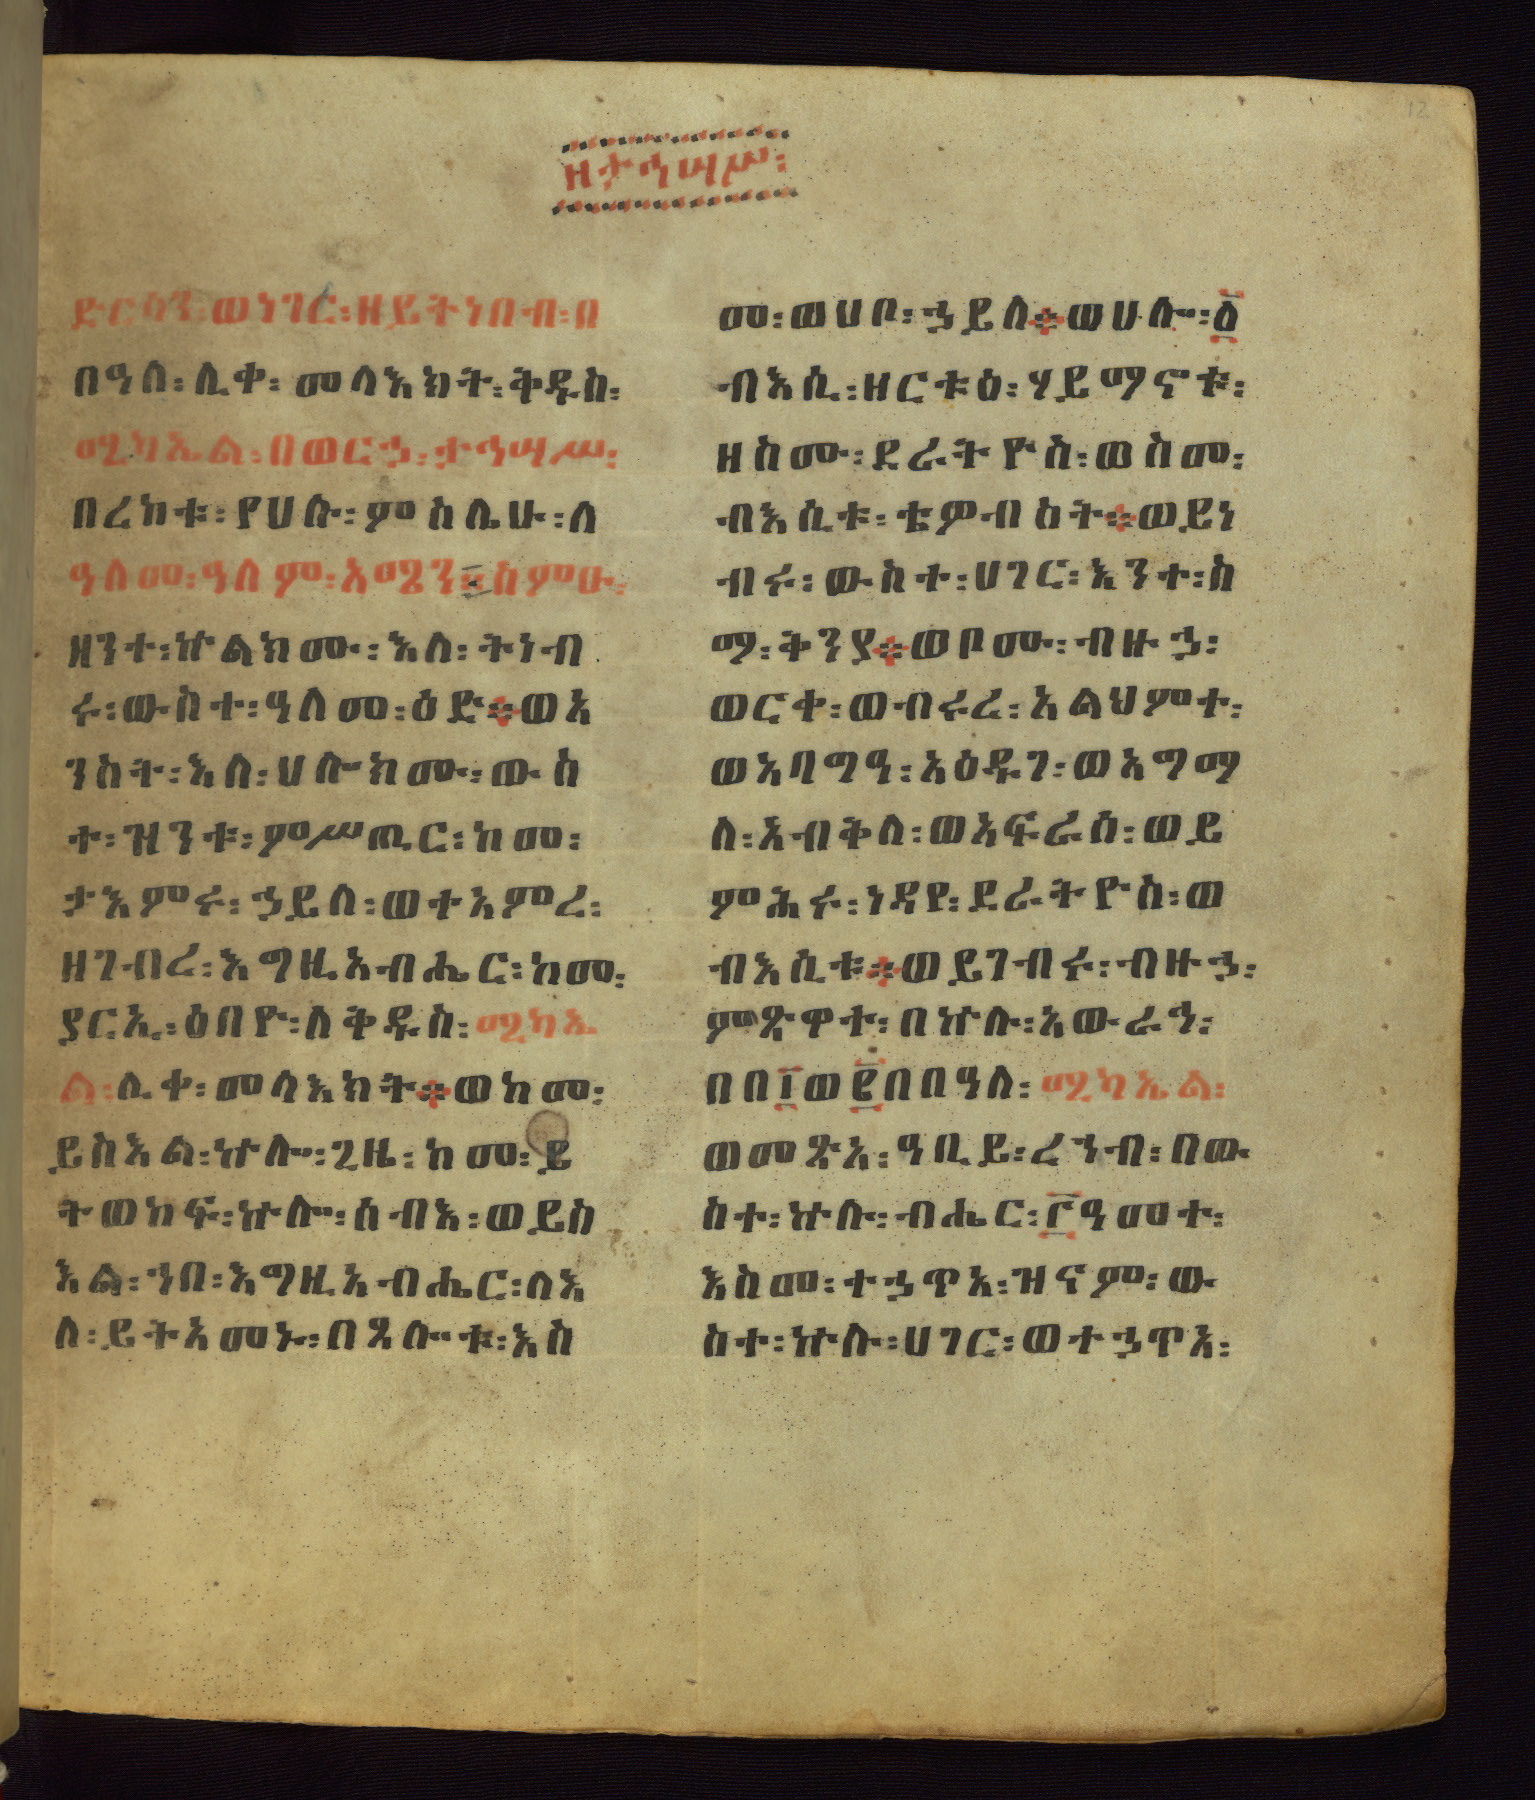 12
ዘታኅሣሥ፡
ድርሳን፡ወነገር፡ዘይትነበብ፡በ
በዓለ፡ሊቀ፡መላእክት፡ቅዱስ፡
ሚካኤል፡በወርኃ፡ታኅሣሥ፡
በረከቱ፡የሀሉ፡ምስሌሁ፡ለ
ዓለመ፡ዓለም፡አሜን፡ስምዑ፡
ዘንተ፡ኵልክሙ፡እለ፡ትነብ
ሩ፡ውስተ፡ዓለመ፡ዕድ፨ወአ
ንስት፡እለ፡ሀሎክሙ፡ውስ
ተ፡ዝንቱ፡ምሥጢር፡ከመ፡
ታእምሩ፡ኃይለ፡ወተአምረ፡
ዘገብረ፡እግዚአብሔር፡ከመ፡
ያርኢ፡ዕበዮ፡ለቅዱስ፡ሚካኤ
ል፡ሊቀ፡መላእክት፨ወከመ፡
ይስእል፡ኵሎ፡ጊዜ፡ከመ፡ይ
ትወከፍ፡ኵሎ፡ሰብአ፡ወይስ
እል፡ኀበ፡እግዚአብሔር፡ለእ
ለ፡ይትአመኑ፡በጸሎቱ፡እስ
መ፡ወሀቦ፡ኃይለ፨ወሀሎ፡፩
ብእሲ፡ዘርቱዕ፡ሃይማኖቱ፡
ዘስሙ፡ደራትዮስ፡ወስመ፡
ብእሲቱ፡ቴምብስት፨ወይነ
ብሩ፡ውስተ፡ሀገር፡እንተ፡ስ
ማ፡ቅንያ፨ወቦሙ፡ብዙኃ፡
ወርቀ፡ወብሩረ፡አልህምተ፡
ወአባግዓ፡አዕዱገ፡ወአግማ
ለ፡አብቅለ፡ወአፍራሰ፡ወይ
ምሕሩ፡ነዳየ፡ደራትዮስ፡ወ
ብእሲቱ፨ወይገብሩ፡ብዙኃ፡
ምጽዋተ፡በኵሉ፡አውራኅ፡
በበ፲ወ፪በበዓለ፡ሚካኤል፡
ወመጽአ፡ዓቢይ፡ረኀብ፡በው
ስተ፡ኵሉ፡ብሔር፡፫ዓመተ፡
እስመ፡ተኃጥአ፡ዝናም፡ው
ስተ፡ኵሉ፡ሀገር፡ወተኃጥአ፡